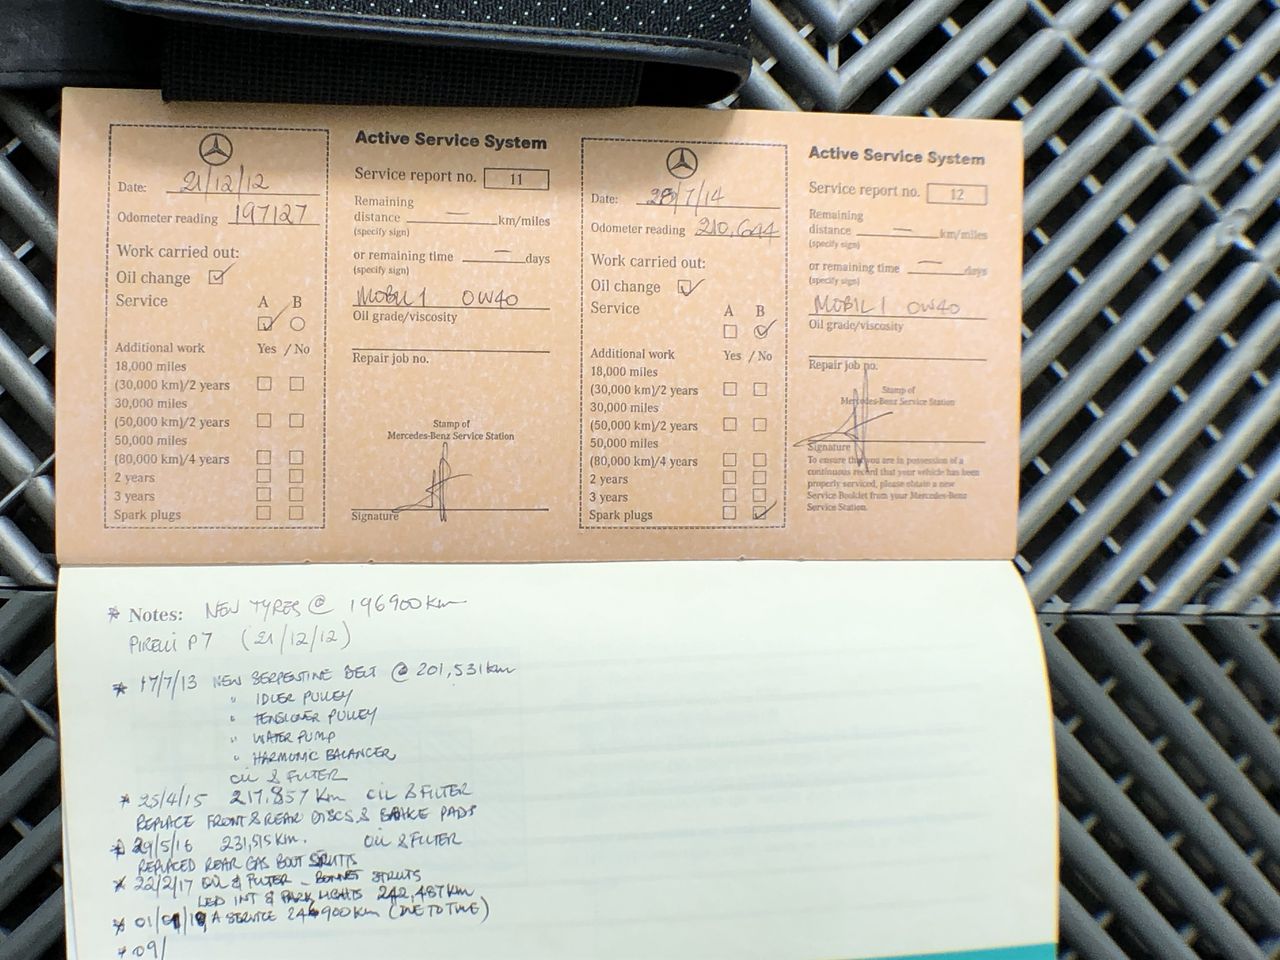 Date: 21/12/12
Odometer reading 197127
Work carried out:
Oil change
Service A B
Additional work Yes / No
18,000 miles
(30,000 km)/2 years
30,000 miles
(50,000 km)/2 years
50,000 miles
(80,000 km)/4 years
2 years
3 years
Spark plugs
Active Service System
Service report no. 11
Remaining
distance — km/miles
(specify sign)
or remaining time — days
(specify sign)
MOBIL 1 0W40
Oil grade/viscosity
Repair job no.
Stamp of
Mercedes-Benz Service Station
Signature
Date: 28/7/14
Odometer reading 210,644
Work carried out:
Oil change
Service A B
Additional work Yes / No
18,000 miles
(30,000 km)/2 years
30,000 miles
(50,000 km)/2 years
50,000 miles
(80,000 km)/4 years
2 years
3 years
Spark plugs
Active Service System
Service report no. 12
Remaining
distance — km/miles
(specify sign)
or remaining time — days
(specify sign)
MOBIL 1 0W40
Oil grade/viscosity
Repair job no.
Stamp of
Mercedes-Benz Service Station
Signature
To ensure that you are in possession of a
continuous record that your vehicle has been
properly serviced, please obtain a new
Service Booklet from your Mercedes-Benz
Service Station.
* Notes: NEW TYRES @ 196900 km
PIRELLI P7 (21/12/12)
* 17/7/13 NEW SERPENTINE BELT @ 201,531km
" IDLER PULLEY
" TENSIONER PULLEY
" WATER PUMP
" HARMONIC BALANCER
OIL & FILTER
* 25/4/15 217,857 Km OIL & FILTER
REPLACE FRONT & REAR DISCS & BRAKE PADS
* 29/5/16 231,515 km. OIL & FILTER
REPLACED REAR GAS BOOT STRUTTS
* 22/2/17 OIL & FILTER - BONNET STRUTS
LED INT & PARK LIGHTS 242,487 km
* 01/01/18, A SERVICE 246900 km (DUE TO TIME)
* 09/